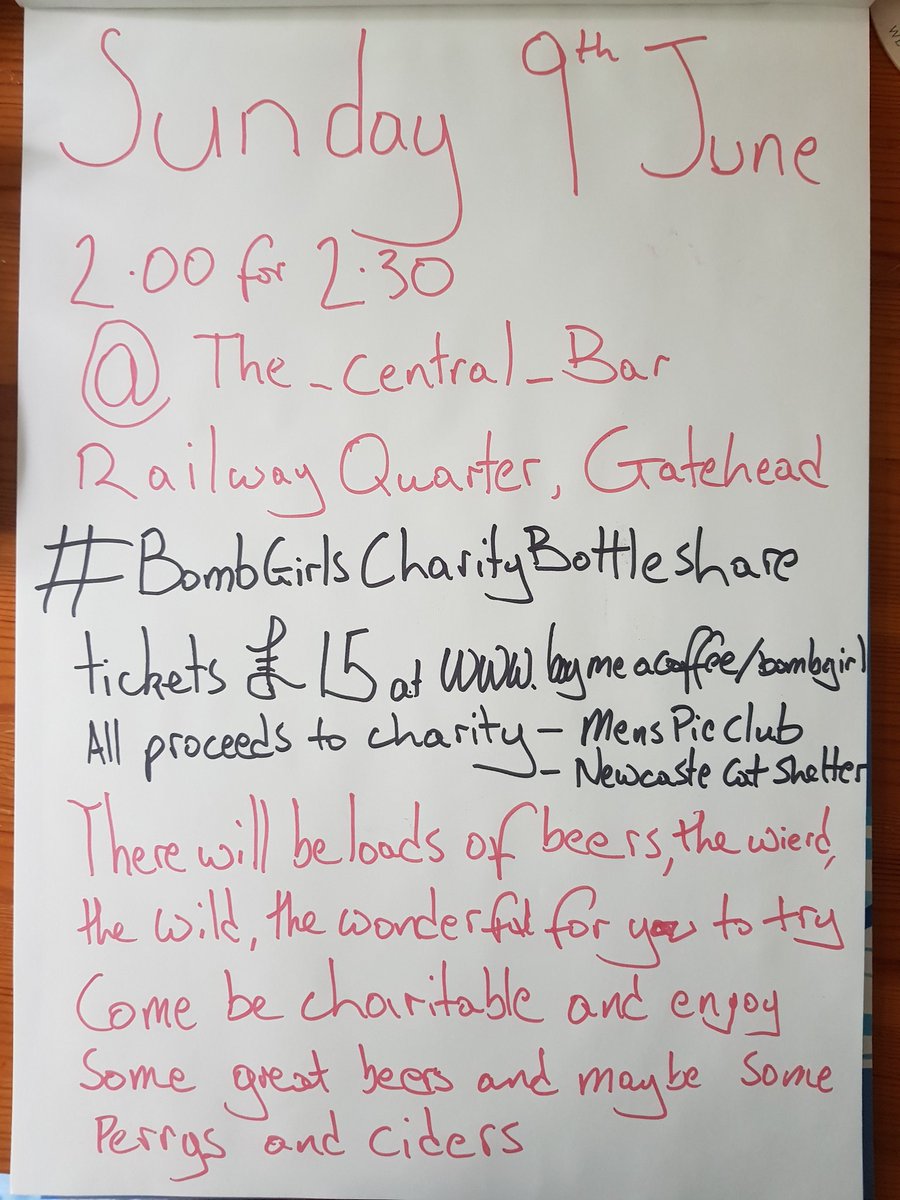 Sunday 9th June
2.00 for 2.30
@ The_Central_Bar
Railway Quarter, Gatehead
#BombGirlsCharityBottleshare
tickets £15 at www.buymeacoffee/bombgirl
All proceeds to charity - Mens Pie Club
- Newcaste Cat Shelter
There will be loads of beers, the wierd,
the wild, the wonderful for you to try
Come be charitable and enjoy
Some great beers and maybe some
Perrys and ciders